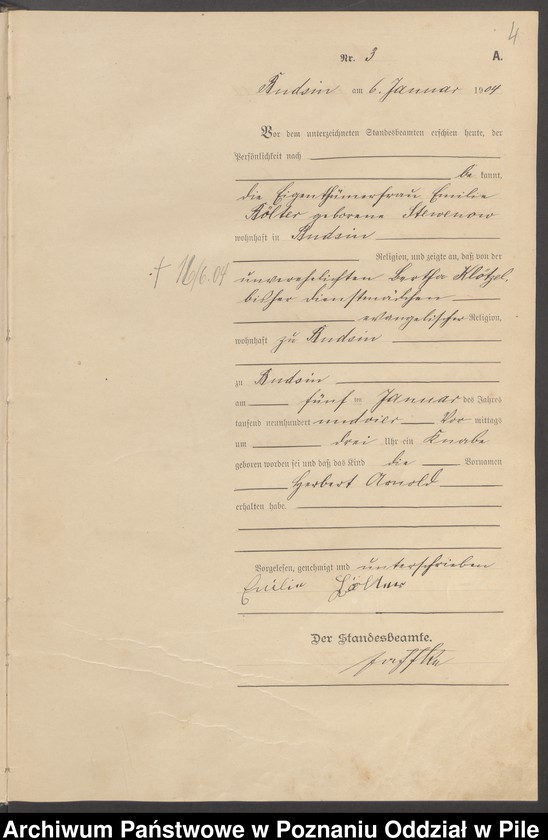 4
Nr. 3 A.
Budsin am 6. Januar 1904
Vor dem unterzeichneten Standesbeamten erschien heute, der
Persönlichkeit nach
be kannt,
die Eigenthümerfrau Emilie
Költer geborene Stewenow
wohnhaft in Budsin
Religion, und zeigte an, daß von der
† 16/6.04
unverehelichten Bertha Klötzel,
bisher Dienstmädchen
evangelischer Religion,
wohnhaft zu Budsin
zu Budsin
am fünf ten Januar des Jahres
tausend neunhundert und vier Vor mittags
um drei Uhr ein Knabe
geboren worden sei und daß das Kind die Vornamen
Herbert Arnold
erhalten habe.
Vorgelesen, genehmigt und unterschrieben
Emilie
Der Standesbeamte.
Archiwum Państwowe w Poznaniu Oddział w Pile